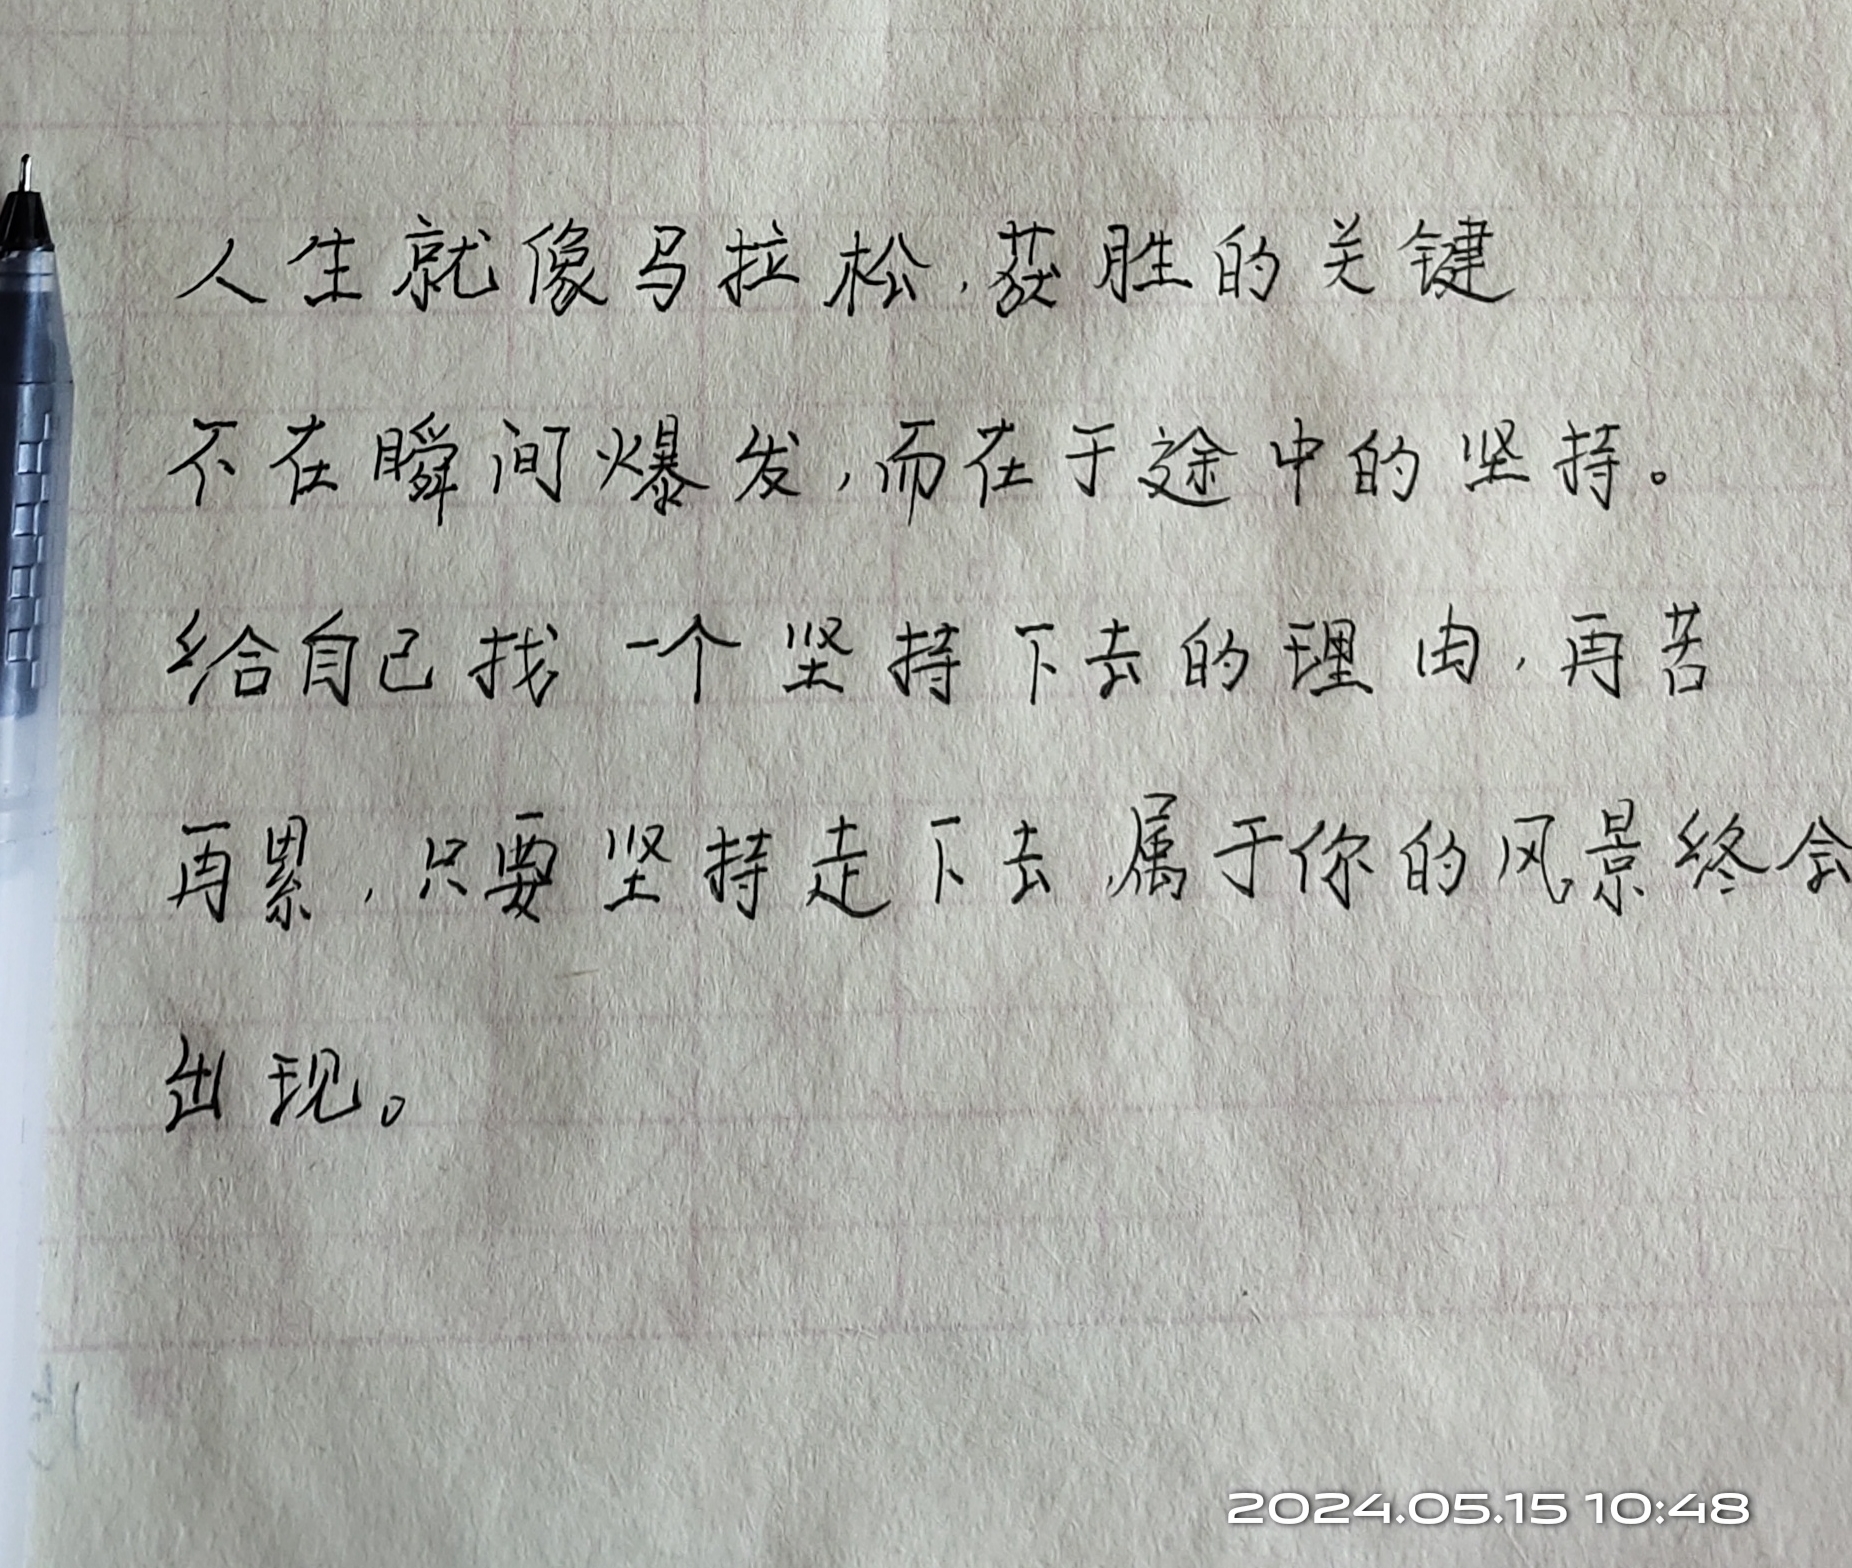 人生就像马拉松，获胜的关键
不在瞬间爆发，而在于途中的坚持。
给自己找一个坚持下去的理由，再苦
再累，只要坚持走下去，属于你的风景终会
出现。
2024.05.15 10:48